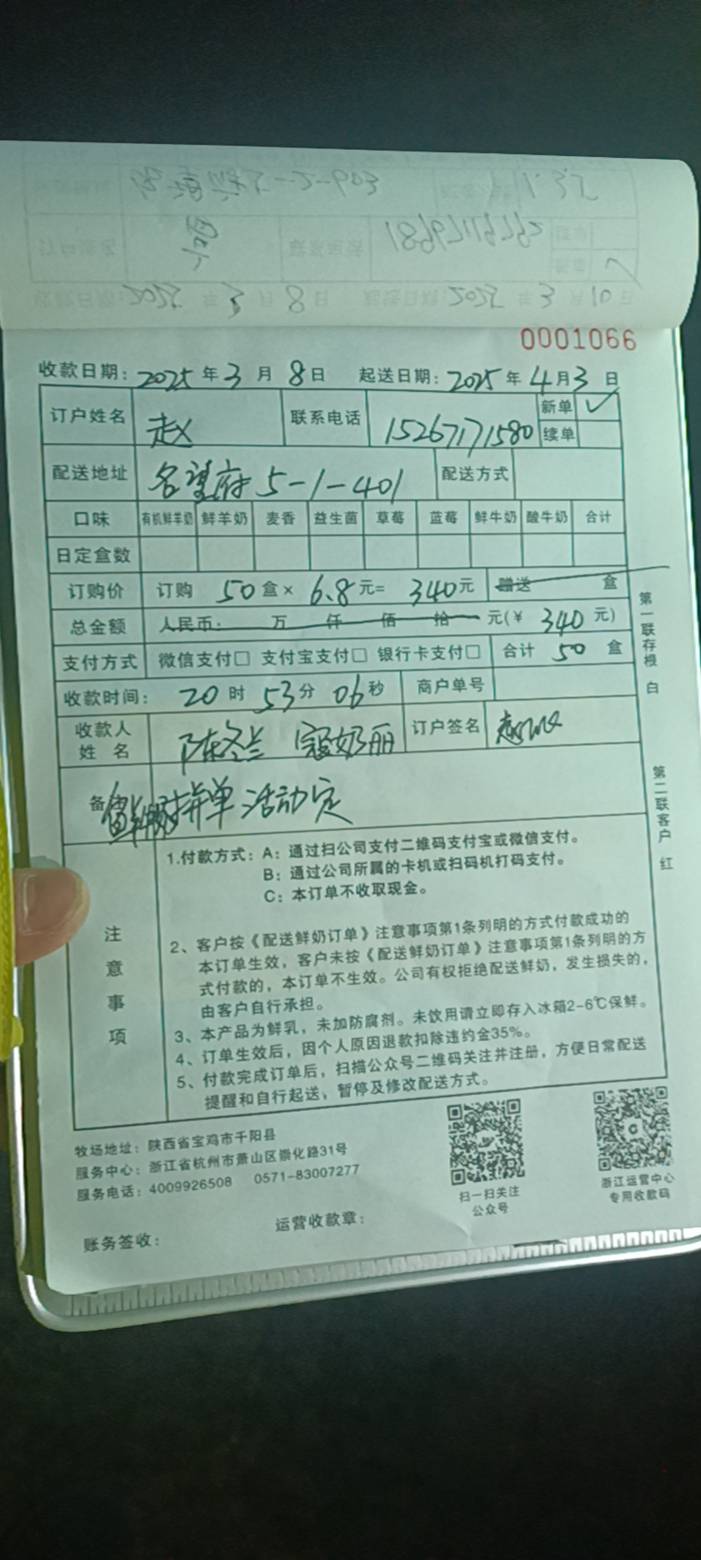 0001066
收款日期: 2025 年 3 月 8 日 起送日期: 2025 年 4 月 3 日
订户姓名 赵 联系电话 15267171580 新单 ✓
续单
配送地址 名望府 5-1-401 配送方式
口味 有机鲜羊奶 鲜羊奶 麦香 益生菌 草莓 蓝莓 鲜牛奶 酸牛奶 合计
日定盒数
订购价 订购 50 盒 × 6.8 元= 340 元 赠送 盒
总金额 人民币: 万 仟 佰 拾 元(¥ 340 元)
支付方式 微信支付□ 支付宝支付□ 银行卡支付□ 合计 50 盒
收款时间: 20 时 53 分 06 秒 商户单号
收款人姓名 陈冬兰 寇奶丽 订户签名
备 拼单活动定
注意事项
1.付款方式: A: 通过扫公司支付二维码支付宝或微信支付。
B: 通过公司所属的卡机或扫码机打码支付。
C: 本订单不收取现金。
2、客户按《配送鲜奶订单》注意事项第1条列明的方式付款成功的
本订单生效，客户未按《配送鲜奶订单》注意事项第1条列明的方
式付款的，本订单不生效。公司有权拒绝配送鲜奶，发生损失的，
由客户自行承担。
3、本产品为鲜乳，未加防腐剂。未饮用请立即存入冰箱2-6℃保鲜。
4、订单生效后，因个人原因退款扣除违约金35%。
5、付款完成订单后，扫描公众号二维码关注并注册，方便日常配送
提醒和自行起送，暂停及修改配送方式。
第一联存根 白
第二联客户 红
牧场地址: 陕西省宝鸡市千阳县
服务中心: 浙江省杭州市萧山区崇化路31号
服务电话: 4009926508 0571-83007277
扫一扫关注
公众号
浙江运营中心
专用收款码
账务签收: 运营收款章: